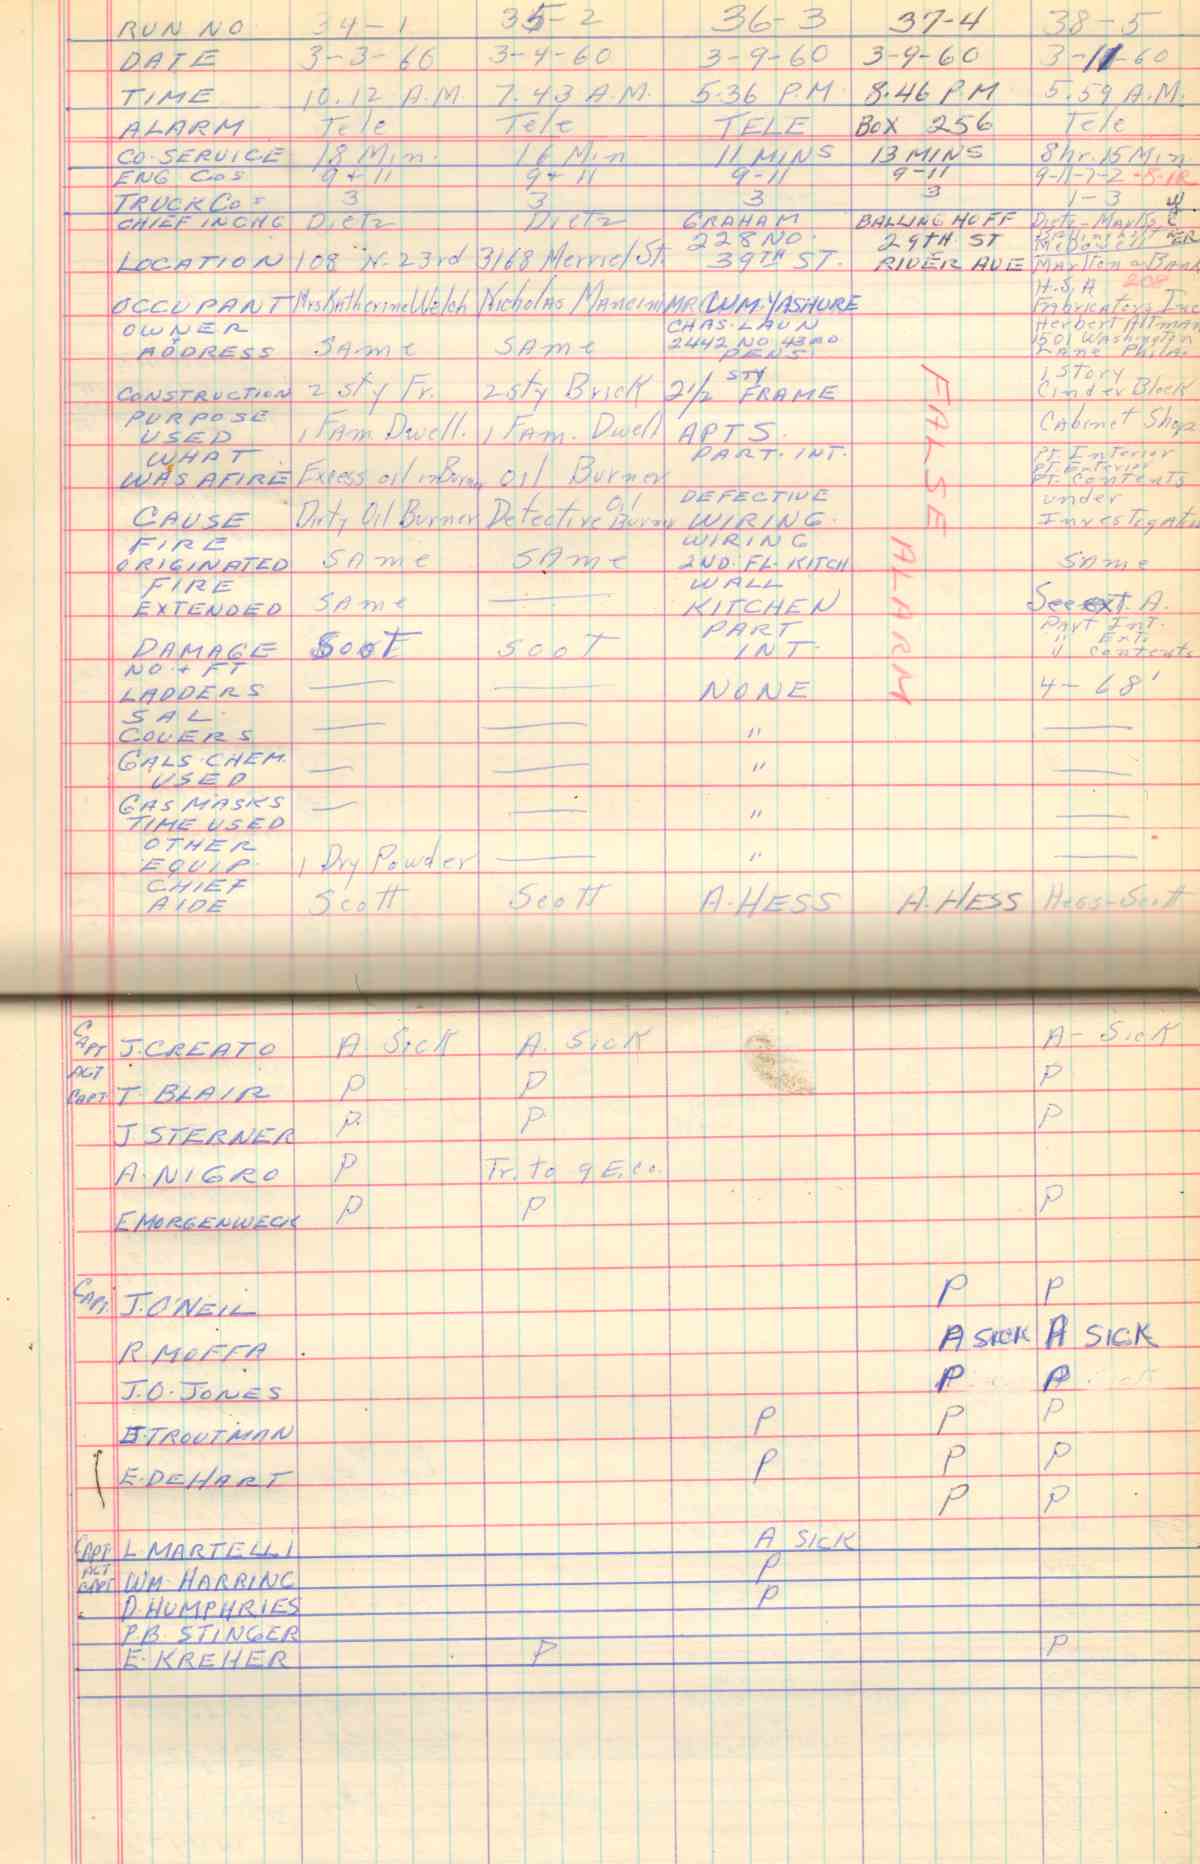 RUN NO 34-1 35-2 36-3 37-4 38-5
DATE 3-3-60 3-4-60 3-9-60 3-9-60 3-11-60
TIME 10.12 A.M. 7.43 A.M. 5.36 P.M 8.46 P.M 5.59 A.M.
ALARM Tele Tele TELE BOX 256 Tele
CO. SERVICE 18 Min. 16 Min 11 MINS 13 MINS 8hr. 15 Min
ENG COS 9+11 9+11 9-11 9-11 9-11-7-2
TRUCK COS 3 3 3 3 1-3
CHIEF IN CHG Dietz Dietz GRAHAM BALLINGHOFF Dietz-Marks
228 NO. 29TH ST McDowell
LOCATION 108 N-23rd 3168 Merriel St. 39TH ST. RIVER AVE Marlton & Bank
H.S.A 208
OCCUPANT Mrs Katherine Welch Nicholas Mancini MR. WM. YASHURE Fabricators Inc
OWNER CHAS. LAUN Herbert Altman
2442 NO. 43RD 1501 Washington
ADDRESS SAme SAme PENS Lane Phila.
STY 1 Story
CONSTRUCTION 2 sty Fr. 2 sty Brick 2 1/2 FRAME Cinder Block
PURPOSE
USED 1 Fam. Dwell. 1 Fam. Dwell APTS. Cabinet Shop
WHAT PART. INT. PT. Interior
PT. Exterior
WAS AFIRE Excess oil in Burner Oil Burner PT. Contents
DEFECTIVE under
CAUSE Dirty Oil Burner Defective Oil Burner WIRING. Investigation
FIRE WIRING
ORIGINATED SAme SAme 2ND. FL. KITCH SAme
FIRE WALL
EXTENDED SAme — KITCHEN See ext. A.
PART Part Int.
" Ext.
DAMAGE SOOT SOOT INT. " Contents
NO. + FT
LADDERS — — NONE 4-68'
SAL.
COVERS — — " —
GALS. CHEM.
USED — — " —
GAS MASKS
TIME USED — — " —
OTHER
EQUIP. 1 Dry Powder — " —
CHIEF
AIDE Scott Scott A. HESS A. HESS Hess-Scott
FALSE ALARM
CAPT J. CREATO A. Sick A. Sick A- Sick
ACT
CAPT T. BLAIR P P P
J STERNER P. P P
A. NIGRO P Tr. to 9 E. Co.
E MORGENWECK P P P
CAPT. J. O'NEIL P P
R. MOFFA A SICK A SICK
J. O. JONES P P
TROUTMAN P P P
E. DEHART P P P
P P
CAPT L. MARTELLI A SICK
ACT
CAPT WM. HARRING P
D. HUMPHRIES P
P.B. STINGER
E. KREHER P P